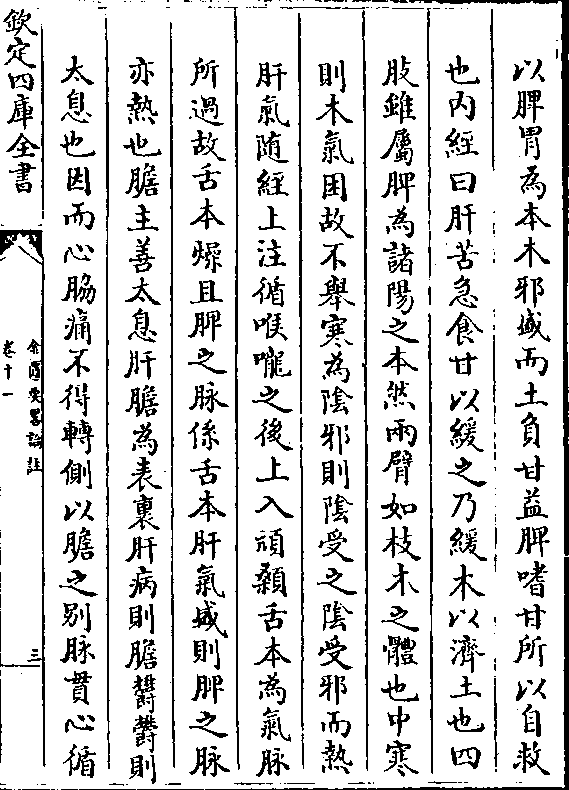 以脾胃為本木邪盛而土負甘益脾嗜甘所以自救
也内經曰肝苦急食甘以緩之乃緩木以濟土也四
肢雖屬脾為諸陽之本然兩臂如枝木之體也中寒
則木氣困故不舉寒為陰邪則陰受之陰受邪而熱
肝氣随經上注循喉嚨之後上入頑顙舌本為氣脉
所過故舌本燥且脾之脉係舌本肝氣盛則脾之脉
亦熱也膽主善太息肝膽為表裏肝病則膽鬱鬱則
太息也因而心脇痛不得轉側以膽之别脉貫心循
欽定四庫全書
金匱要畧論註
卷十一
三